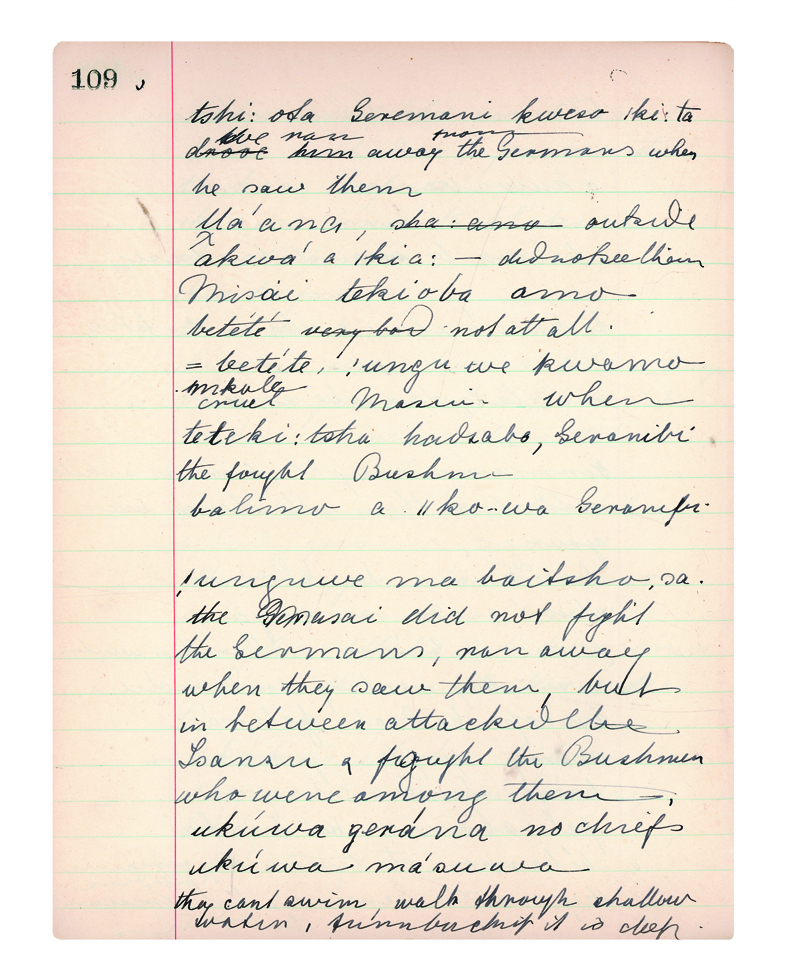 109
tshi: ota Geremani kweso /ki:ta
he ran many
drove him away the Germans when
he saw them
Ua'ana, sha: ana outside
akwá a /kia: — did not see them
Misái tekioba amo
betété very bad not at all.
= betéte, !ungu we kwamo
mkale
cruel Masai. when
teteki:tsha hadzabo, Geranibi
the fought Bushm
balimo a //ko-wa
!unguwe ma baitsho, sa.
the Masai did not fight
the Germans, ran away
when they saw them, but
in between attacked the
Isanzu & fought the Bushmen
who were among them;
ukúwa gerána no chiefs
ukúwa másuwa
they cant swim, walk through shallow
water, turn back if it is deep.